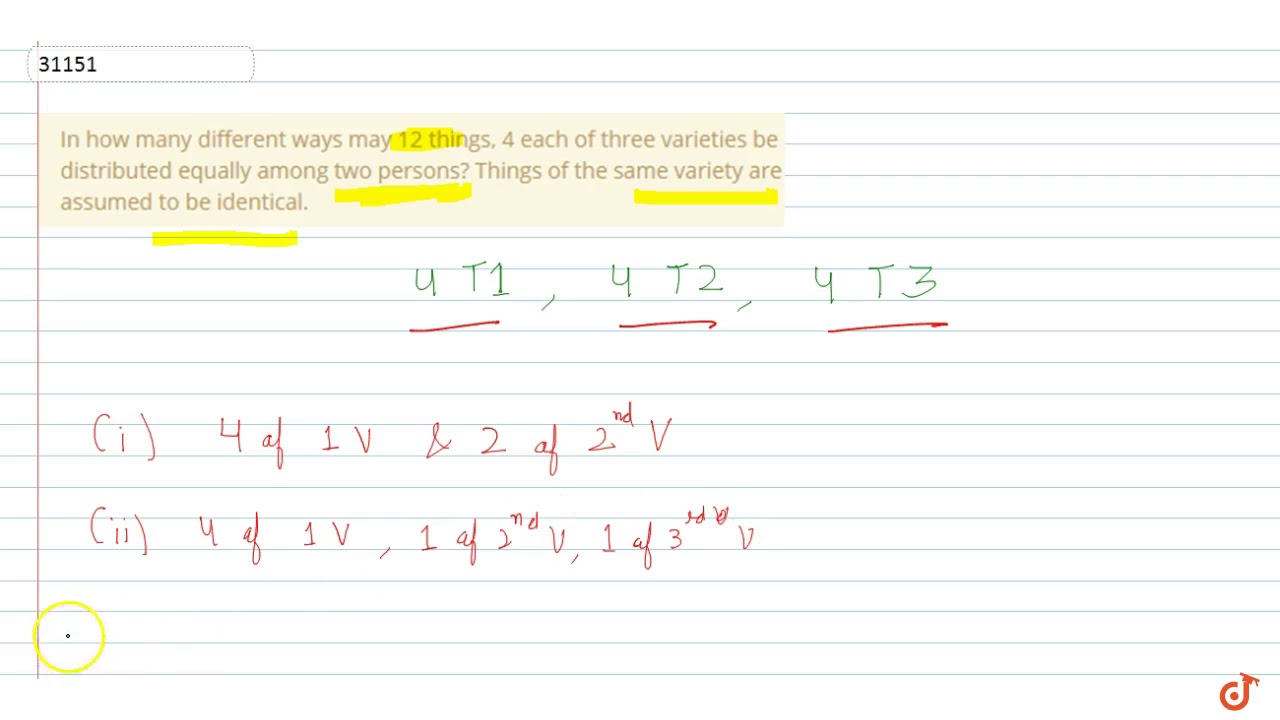 31151
In how many different ways may 12 things, 4 each of three varieties be
distributed equally among two persons? Things of the same variety are
assumed to be identical.
4 T1 , 4 T2 , 4 T3
(i) 4 of 1 V & 2 of 2nd V
(ii) 4 of 1 V , 1 of 2nd V, 1 of 3rd V